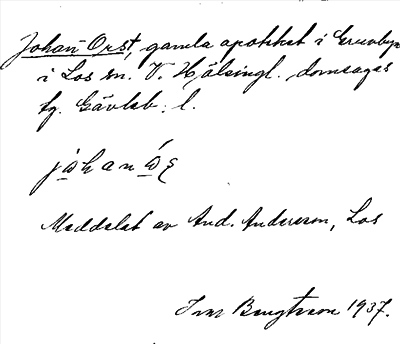 Johan-Orst, gamla apotheket i Gruvbyn
i Los sn. V. Hälsingl. domsagas
tg. Gävleb. l.
Meddelat av And. Andersson, Los
Ivar Bengtsson 1937.